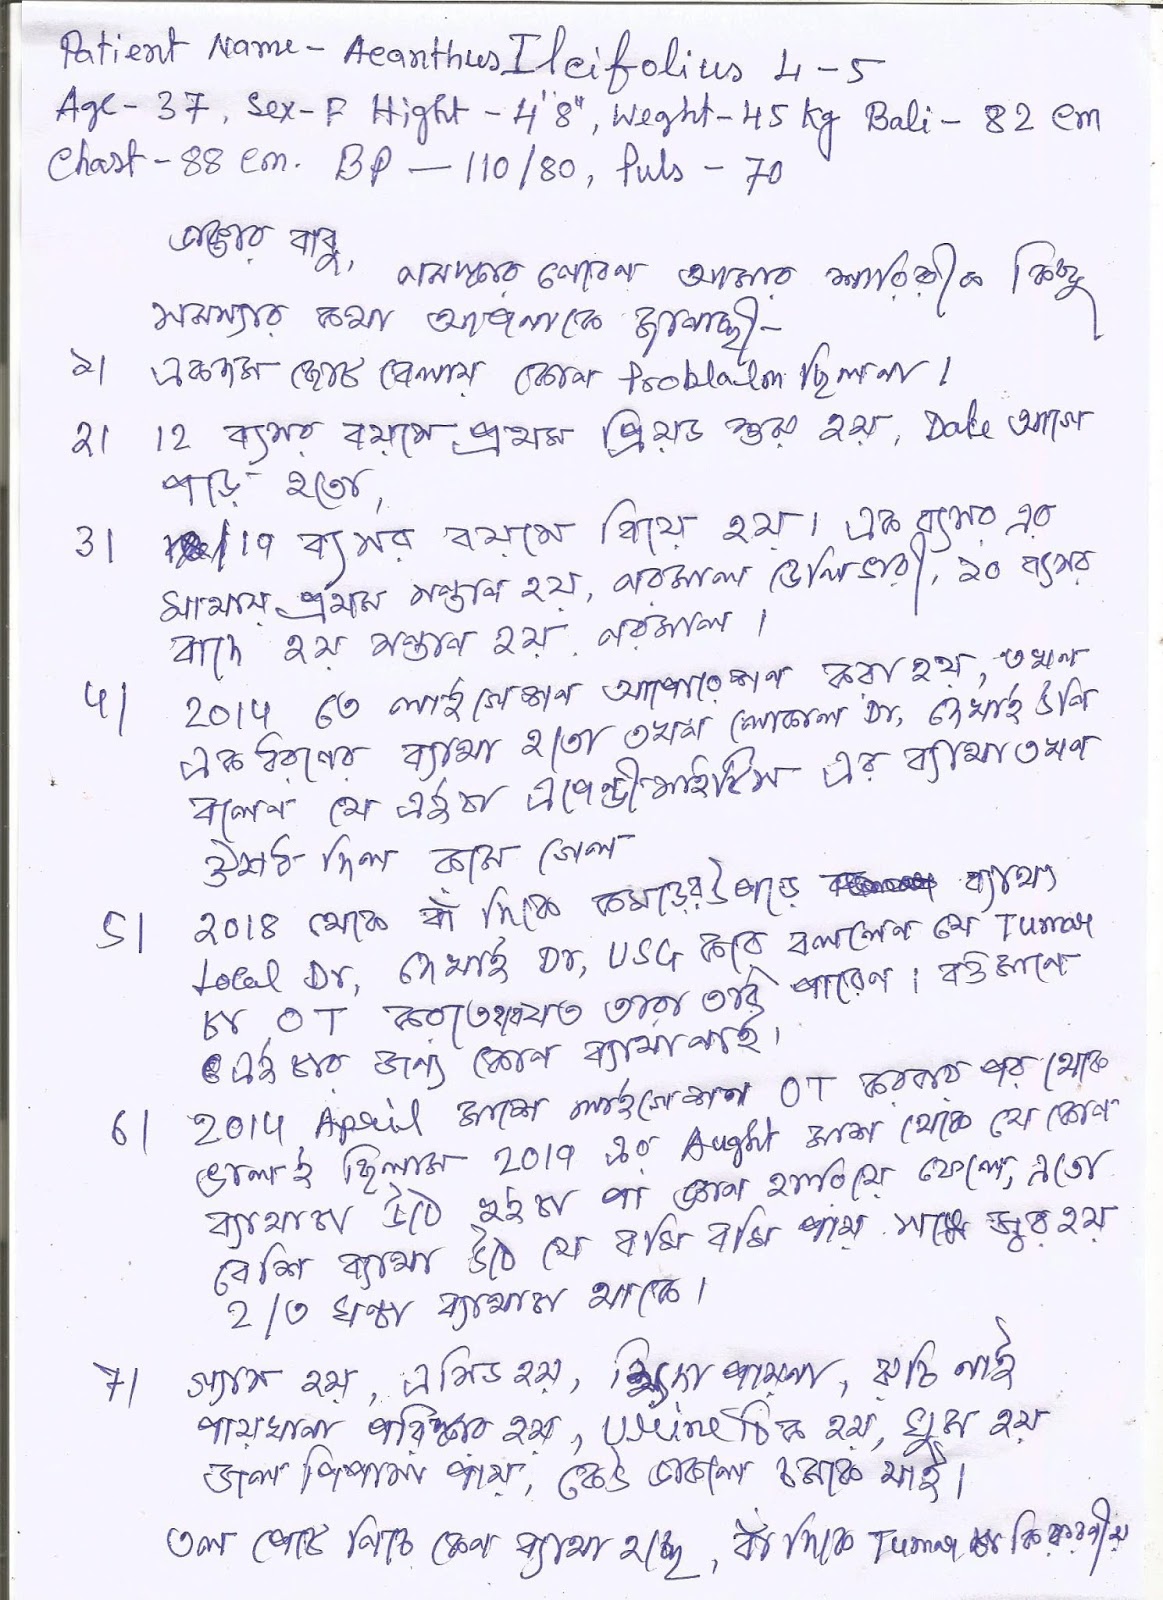 Patient Name - Acanthus Ilcifolius 4-5
Age - 37, Sex - F Hight - 4'8", Weght - 45 kg Bali - 82 cm
Chast - 88 cm. BP — 110/80, Puls - 70
ডাক্তার বাবু,
নমস্কার নেবেন আমার শারিরীক কিছু
সমস্যার কথা আপনাকে জানাচ্ছী -
১। একদম ছোট বেলায় কোন Problem ছিলনা।
২। 12 ব্যসর বয়সে প্রথম প্রিয়ড শুরু হয়, Date আগে
পড়ে হতো,
3। 19 ব্যসর বয়সে বিয়ে হয়। এক ব্যসর এর
মাথায় প্রথম সন্তান হয়, নরমাল ডেলিভারী, ১০ ব্যসর
বাদে ২য় সন্তান হয় নরমাল।
4। 2014 তে লাইগেশান অপারেশন করা হয়, তখন
এক ধরণের ব্যাথা হতো তখন লোকাল Dr, দেখাই উনি
বলেন যে এইটা এপেন্ডীসাইটিস এর ব্যাথা তখন
ঔষধি দিল কমে গেল
5। 2018 থেকে বাঁ দিকে কমড়ের উপড়ে ব্যাথা
Local Dr, দেখাই Dr, USG করে বললেন যে Tumar
টা OT করতে তারা পারেন। বর্তমানে
এইটার জন্য কোন ব্যাথা নাই।
6। 2014 April মাসে লাইগেশান OT করবার পর থেকে
ভালই ছিলাম 2019 এর Aught মাস থেকে যে কোন
ব্যাথাটা উঠে দুইটা পা জ্ঞান হারিয়ে ফেলে, এতো
বেশি ব্যাথা উঠে যে বমি বমি পায় সঙ্গে জ্বর হয়
2/৩ ঘন্টা ব্যাথাটা থাকে।
7। গ্যাস হয়, এসিড হয়, পায়না, রুচি নাই
পায়খানা পরিস্কার হয়, Urine ঠিক হয়, ঘুম হয়
জল পিপাসা পায়, কেউ ডাকলে চমকে যাই।
তল পেটে নিচে কেন ব্যাথা হচ্ছে, বাঁ দিকে Tumar টা কি করণীয়